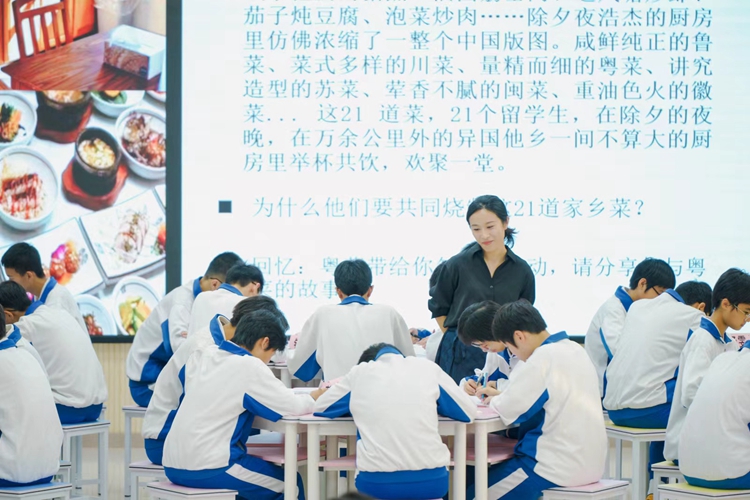 茄子炖豆腐、泡菜炒肉……除夕夜浩杰的厨房
里仿佛浓缩了一整个中国版图。咸鲜纯正的鲁
菜、菜式多样的川菜、量精而细的粤菜、讲究
造型的苏菜、荤香不腻的闽菜、重油色火的徽
菜... 这21 道菜，21个留学生，在除夕的夜
晚，在万余公里外的异国他乡一间不算大的厨
房里举杯共饮，欢聚一堂。
■ 为什么他们要共同烧 21道家乡菜？
回忆：粤 带给你 动，请分享 与粤
的故事